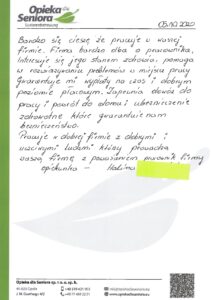 Opieka
Seniora
05.10.2020
Bardzo się cieszę że pracuję w waszej
firmie. Firma bardzo dba o pracownika,
interesuje się jego stanem zdrowia, pomaga
w rozwiązywaniu problemów w miejscu pracy
gwarantuje mi wypłatę na czas i dobrym
poziomie płacowym. Zapewnia dowóz do
pracy i powrót do domu i ubezpieczenie
zdrowotne które gwarantuje nam
bezpieczeństwo.
Pracuję w dobrej firmie z dobrymi i
uczciwymi ludźmi którzy prowadzą
waszą firmę z poważaniem pracownik firmy
opiekunka - Halina
Opieka dla Seniora sp. z o. o. sp. k.
45-023 Opole